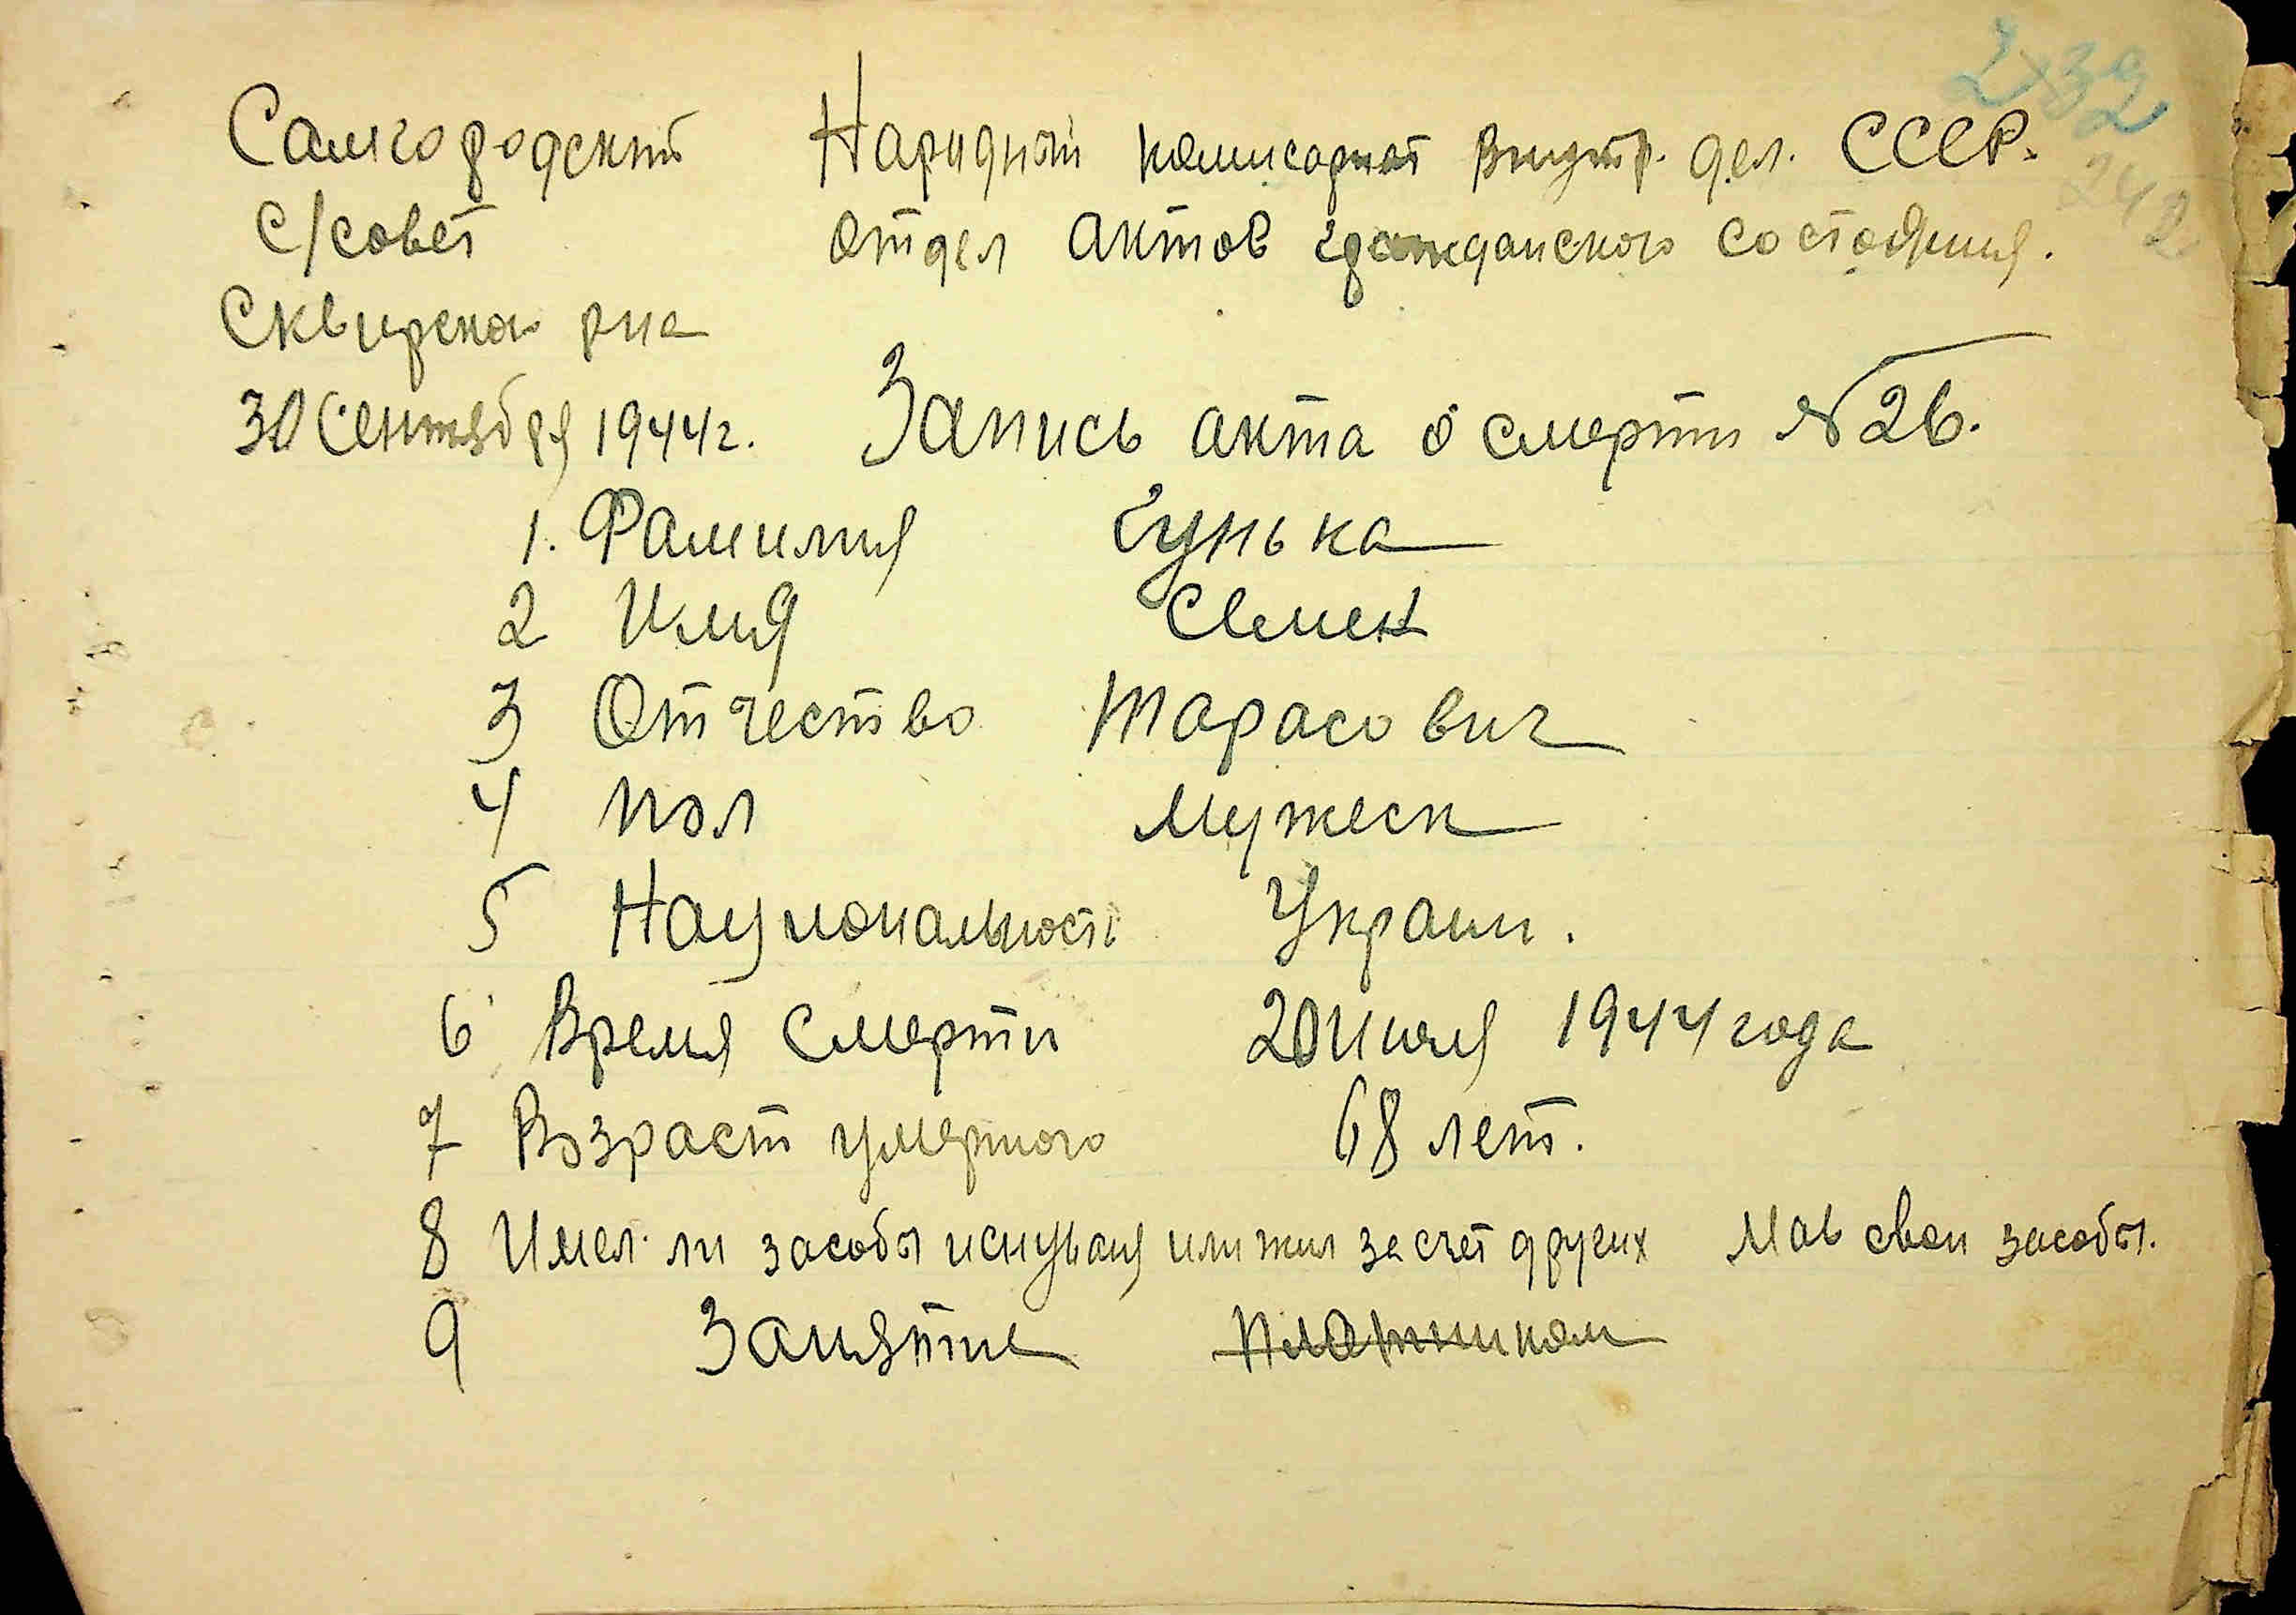 239
242
Самгородский Народный комисариат Внутр. дел. СССР.
с/совет Отдел актов гражданского состояния.
Сквирского р-на
30 Сентября 1944 г. Запись акта о смерти № 26.
1. Фамилия Гунька
2 Имя Семен
3 Отчество Тарасович
4 пол Мужеск
5 Национальность Украин.
6 Время смерти 20 Июля 1944 года
7 Возраст умершого 68 лет.
8 Имел ли засобы иснуваня или жил за счет других Мав свои засобы.
9 Занятие Плотником